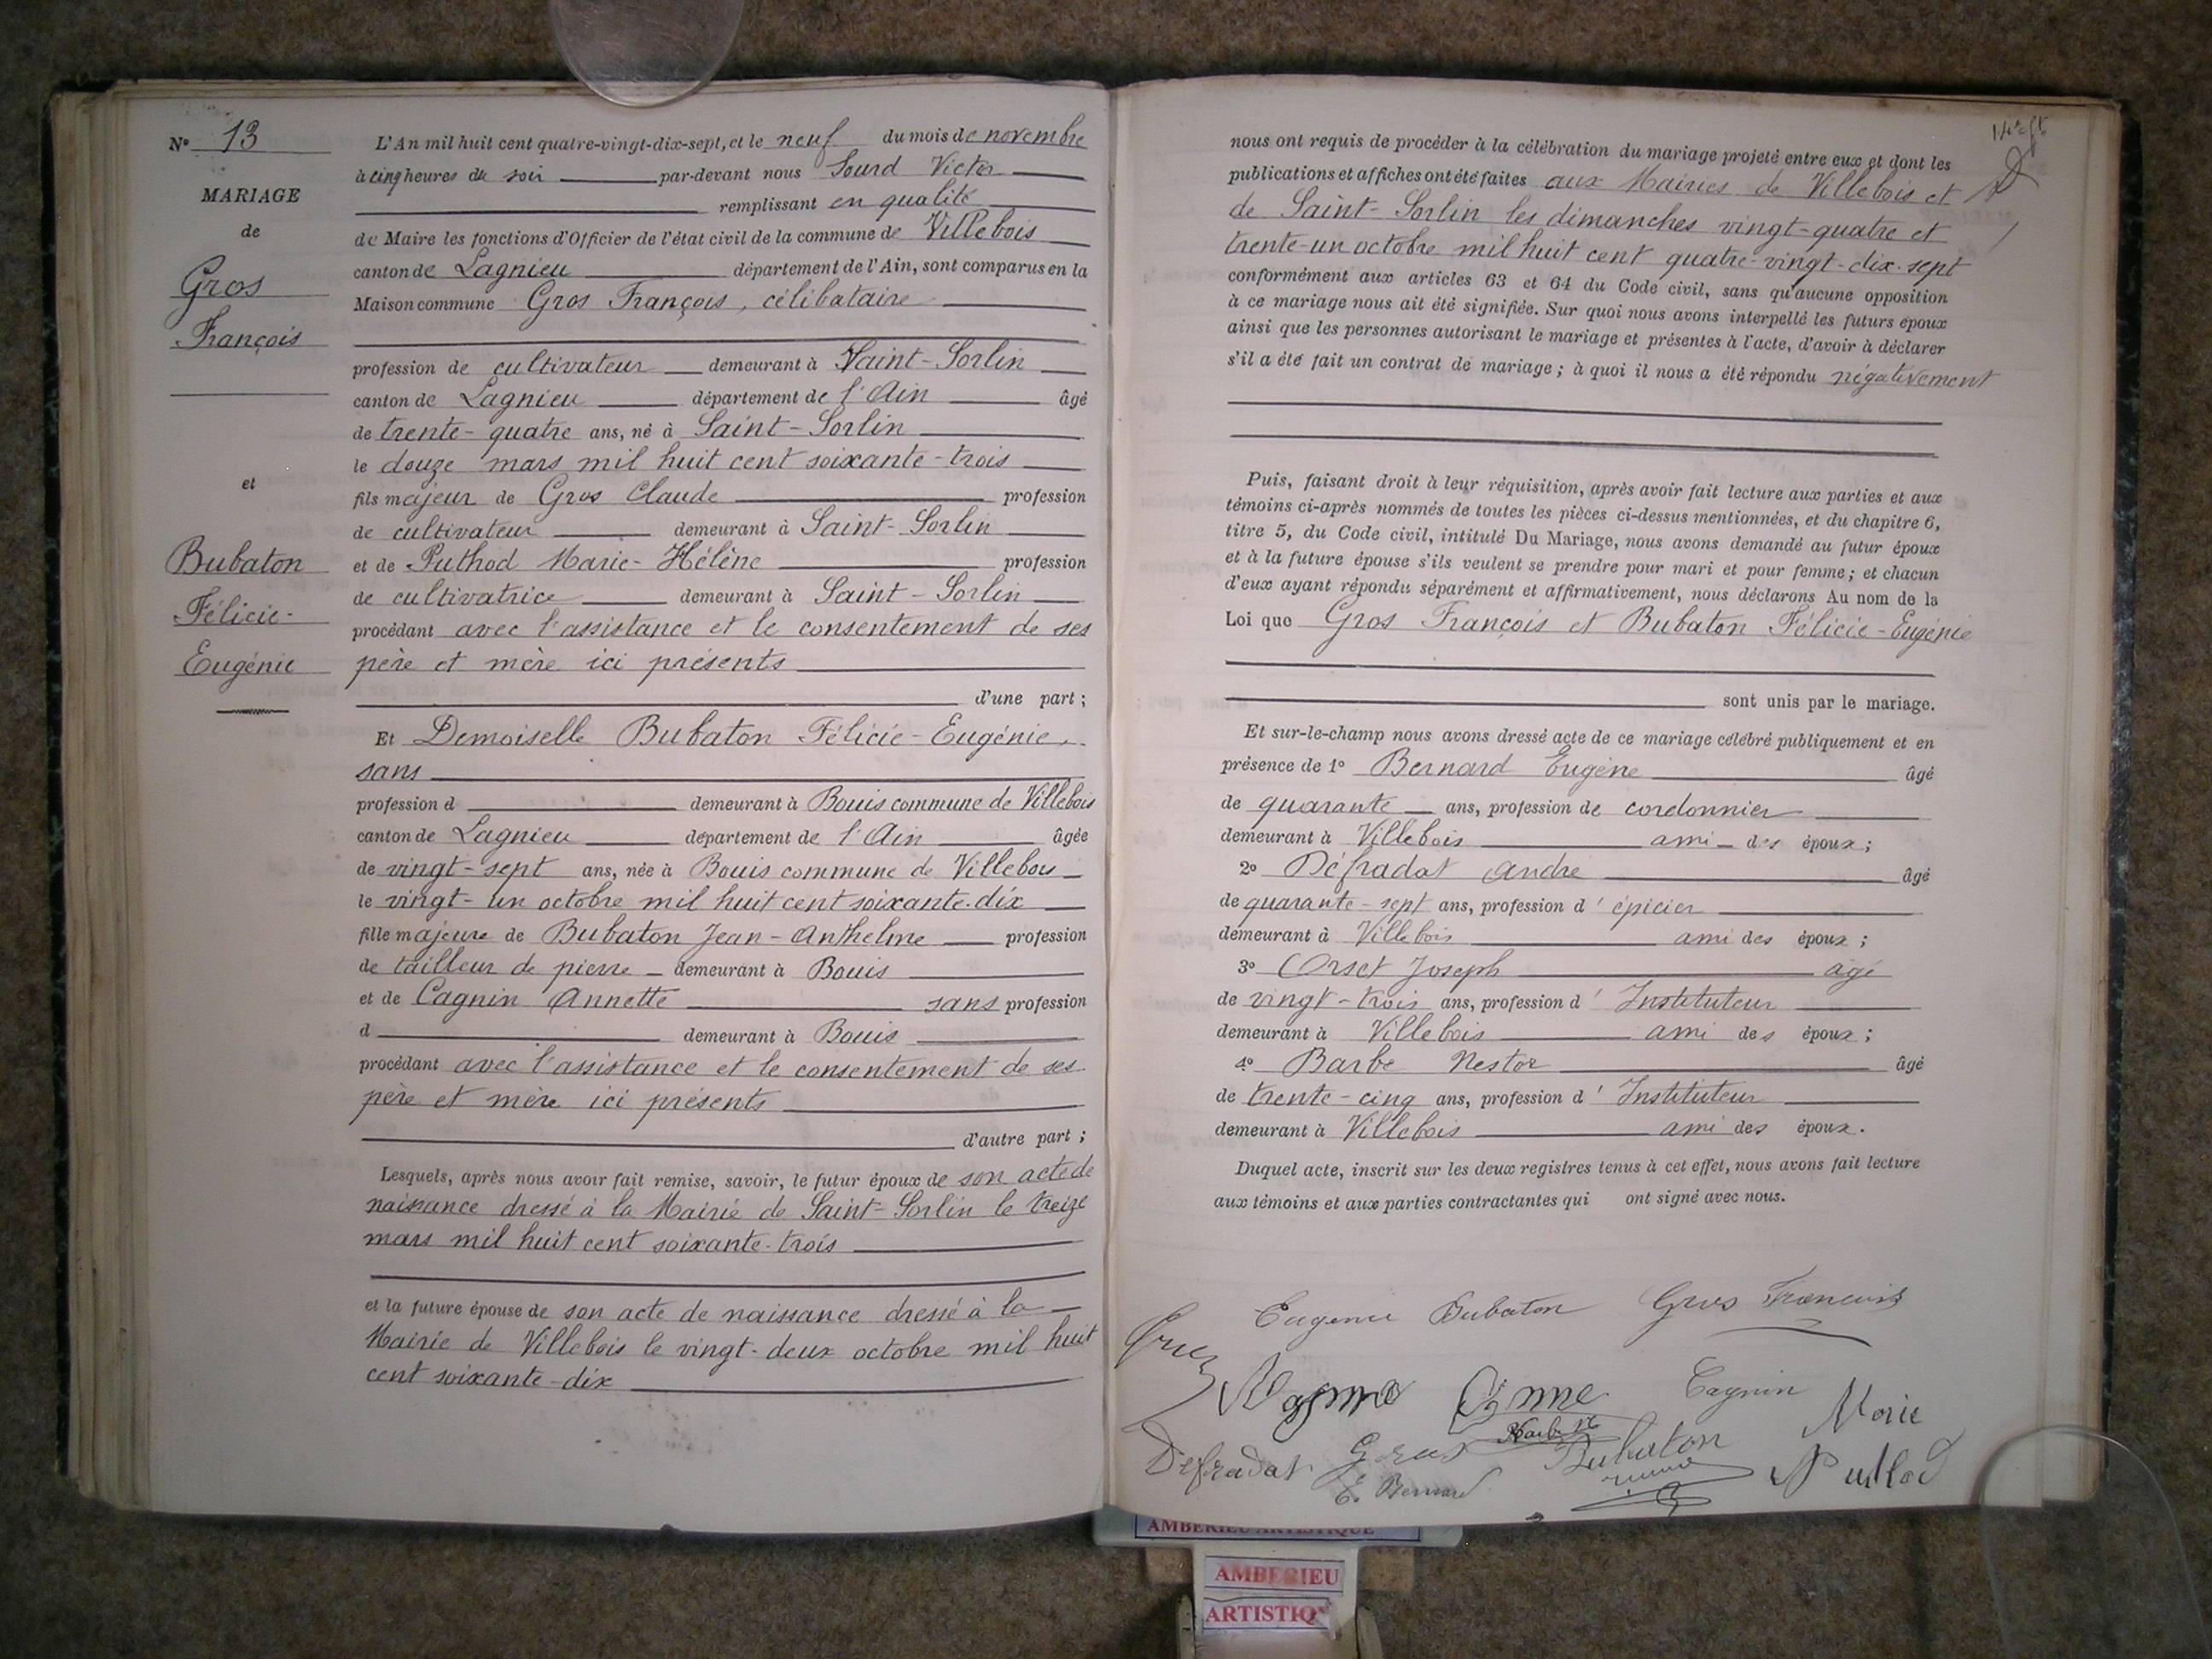 N° 13
MARIAGE
de
Gros
François
et
Bubaton
Félicie-
Eugénie
L'An mil huit cent quatre-vingt-dix-sept, et le neuf du mois de novembre
à cinq heures du soir par-devant nous Sourd Victor
remplissant en qualité
de Maire les fonctions d'Officier de l'état civil de la commune de Villebois
canton de Lagnieu département de l'Ain, sont comparus en la
Maison commune Gros François, célibataire
profession de cultivateur demeurant à Saint-Sorlin
canton de Lagnieu département de l'Ain âgé
de trente-quatre ans, né à Saint-Sorlin
le douze mars mil huit cent soixante-trois
fils majeur de Gros Claude profession
de cultivateur demeurant à Saint-Sorlin
et de Puthod Marie-Hélène profession
de cultivatrice demeurant à Saint-Sorlin
procédant avec l'assistance et le consentement de ses
père et mère ici présents
d'une part ;
Et Demoiselle Bubaton Félicie-Eugénie,
sans
profession d demeurant à Bouis commune de Villebois
canton de Lagnieu département de l'Ain âgée
de vingt-sept ans, née à Bouis commune de Villebois
le vingt-un octobre mil huit cent soixante-dix
fille majeure de Bubaton Jean-Anthelme profession
de tailleur de pierre demeurant à Bouis
et de Cagnin Annette sans profession
d demeurant à Bouis
procédant avec l'assistance et le consentement de ses
père et mère ici présents
d'autre part ;
Lesquels, après nous avoir fait remise, savoir, le futur époux de son acte de
naissance dressé à la Mairie de Saint-Sorlin le treize
mars mil huit cent soixante-trois
et la future épouse de son acte de naissance dressé à la
Mairie de Villebois le vingt-deux octobre mil huit
cent soixante-dix
nous ont requis de procéder à la célébration du mariage projeté entre eux et dont les
publications et affiches ont été faites aux Mairies de Villebois et
de Saint-Sorlin les dimanches vingt-quatre et
trente-un octobre mil huit cent quatre-vingt-dix-sept
conformément aux articles 63 et 64 du Code civil, sans qu'aucune opposition
à ce mariage nous ait été signifiée. Sur quoi nous avons interpellé les futurs époux
ainsi que les personnes autorisant le mariage et présentes à l'acte, d'avoir à déclarer
s'il a été fait un contrat de mariage ; à quoi il nous a été répondu négativement
Puis, faisant droit à leur réquisition, après avoir fait lecture aux parties et aux
témoins ci-après nommés de toutes les pièces ci-dessus mentionnées, et du chapitre 6,
titre 5, du Code civil, intitulé Du Mariage, nous avons demandé au futur époux
et à la future épouse s'ils veulent se prendre pour mari et pour femme ; et chacun
d'eux ayant répondu séparément et affirmativement, nous déclarons Au nom de la
Loi que Gros François et Bubaton Félicie-Eugénie
sont unis par le mariage.
Et sur-le-champ nous avons dressé acte de ce mariage célébré publiquement et en
présence de 1° Bernard Eugène âgé
de quarante ans, profession de cordonnier
demeurant à Villebois ami des époux ;
2° Défradat André âgé
de quarante-sept ans, profession d'épicier
demeurant à Villebois ami des époux ;
3° Orset Joseph âgé
de vingt-trois ans, profession d'Instituteur
demeurant à Villebois ami des époux ;
4° Barbe Nestor âgé
de trente-cinq ans, profession d'Instituteur
demeurant à Villebois ami des époux.
Duquel acte, inscrit sur les deux registres tenus à cet effet, nous avons fait lecture
aux témoins et aux parties contractantes qui ont signé avec nous.
Eugenie Bubaton Gros Francois
Anne Cagnin Marie
Defradat Gros Bubaton
E. Bernard
AMBERIEU ARTISTIQUE
AMBERIEU
ARTISTIQ